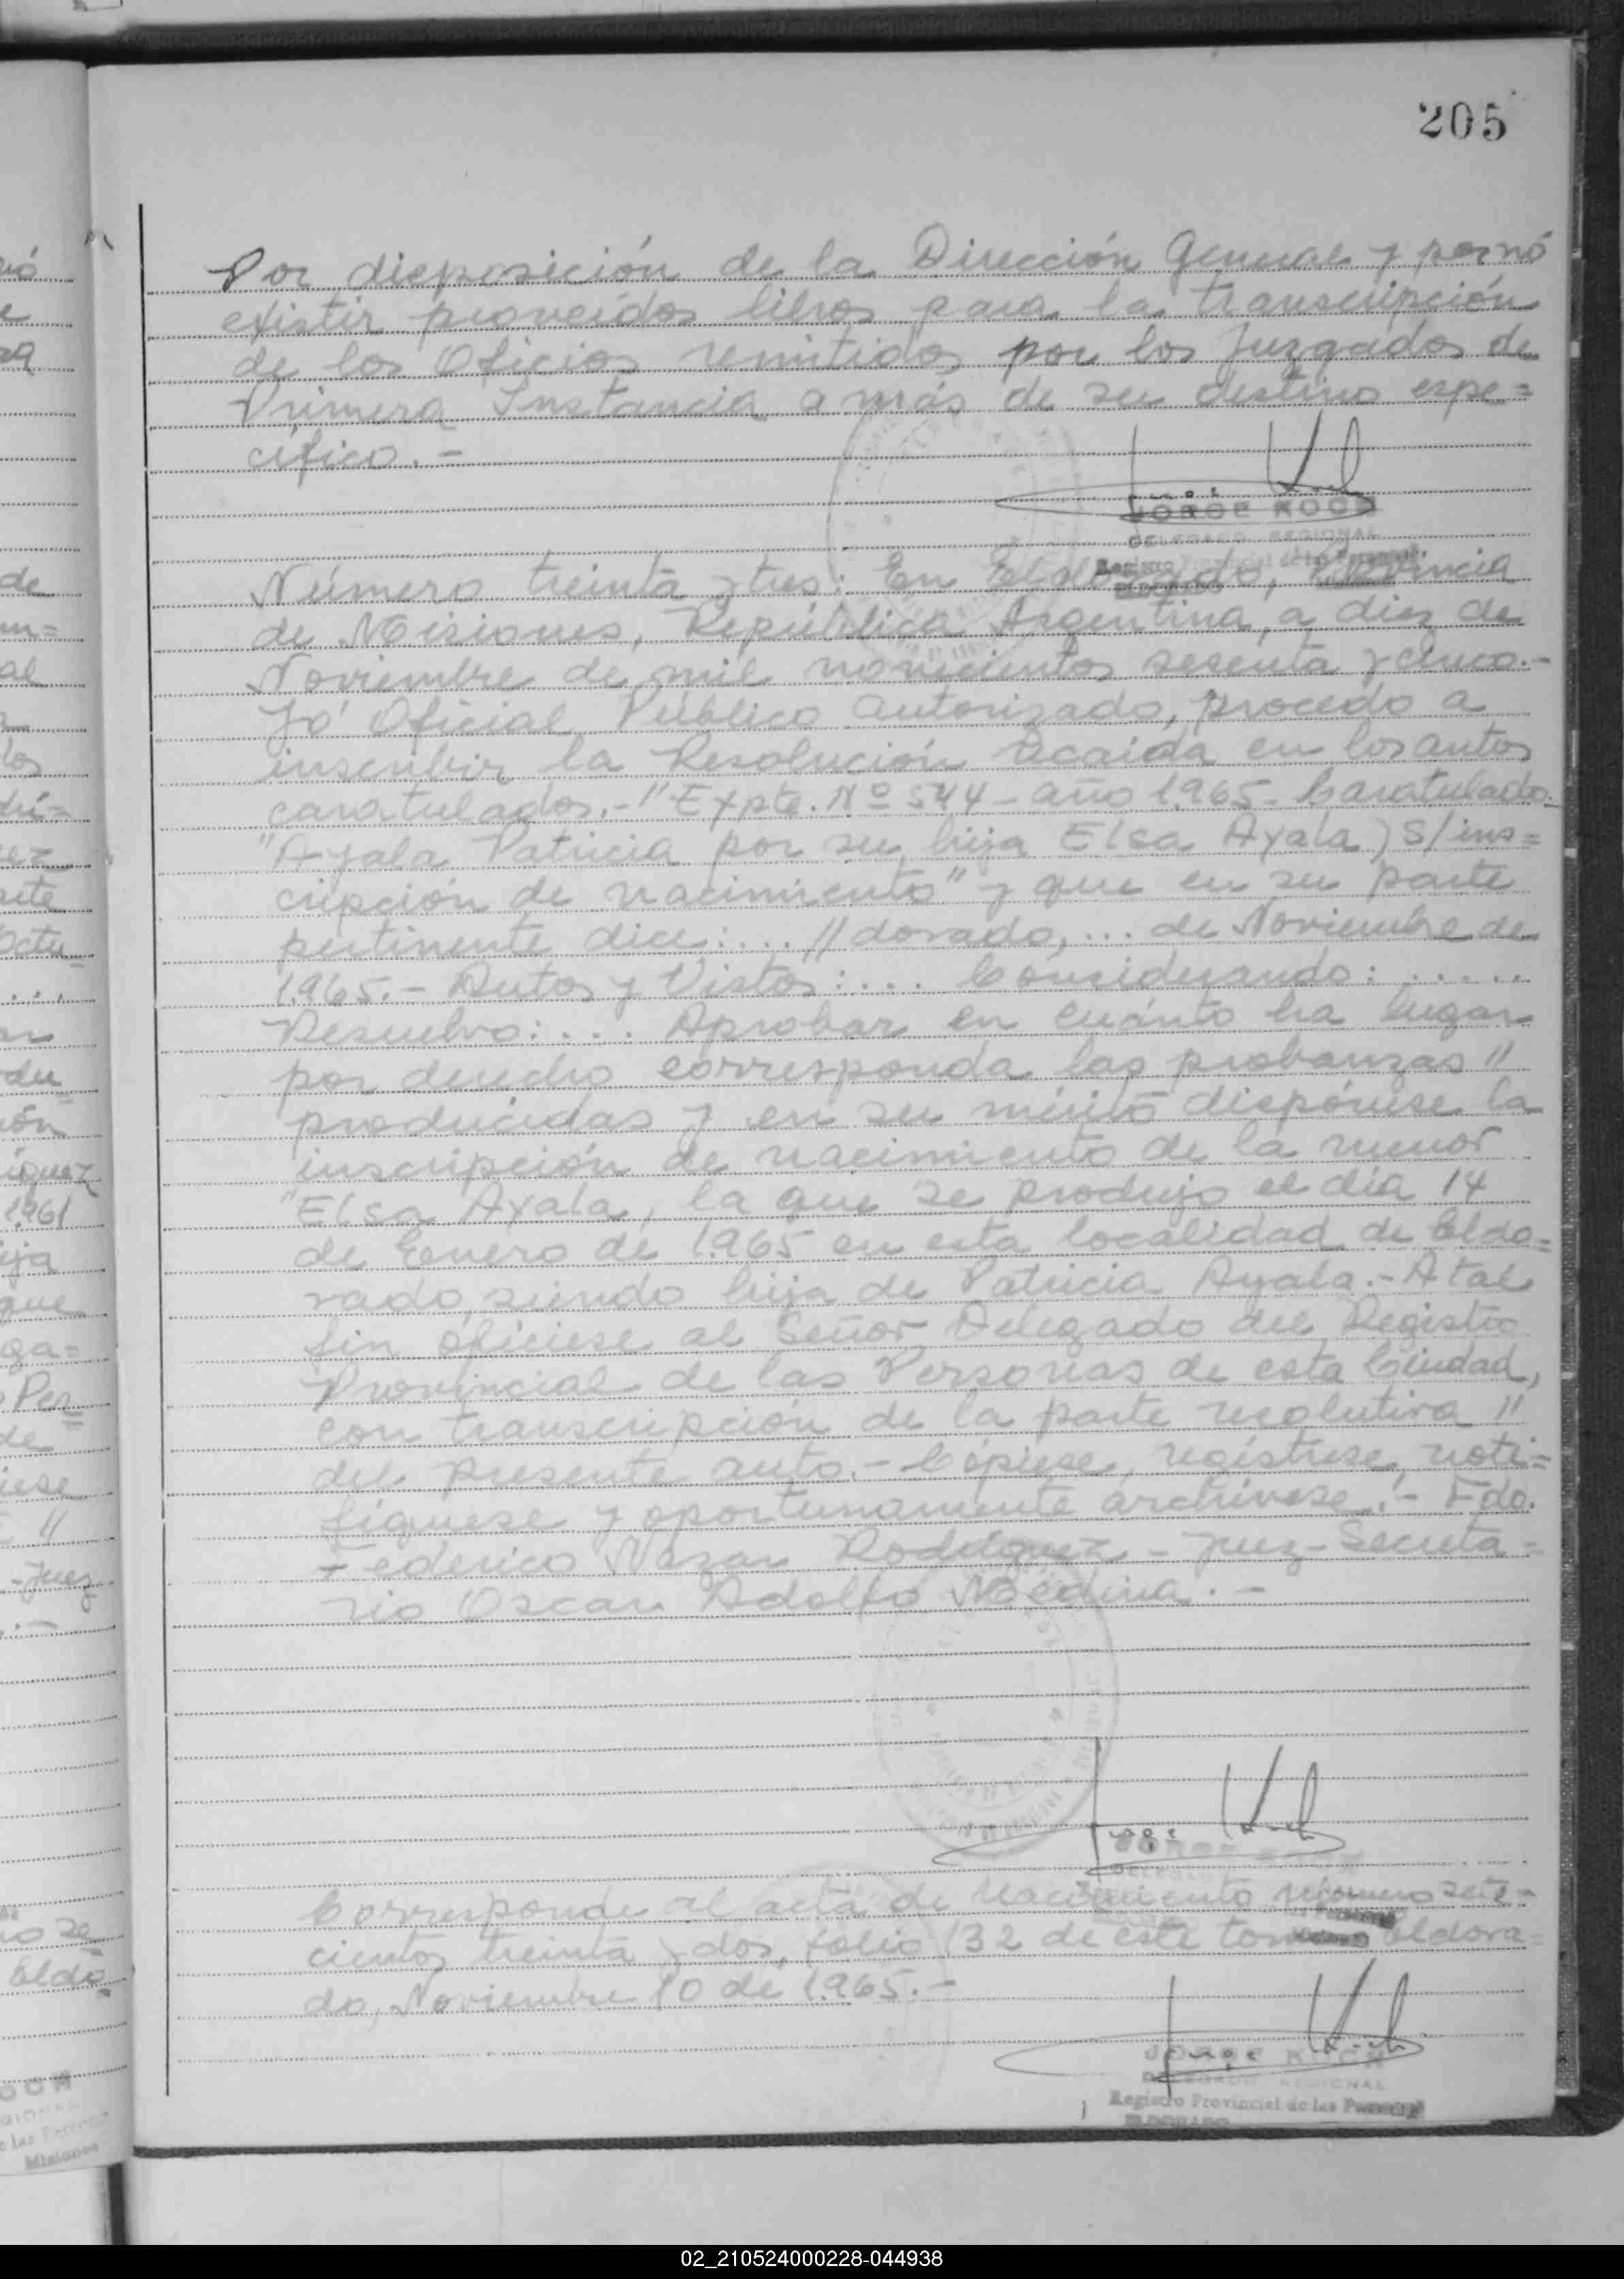 205
Por disposición de la Dirección General y por nó
existir proveídos libros para la transcripción
de los Oficios remitidos por los Juzgados de
Primera Instancia a más de su destino espe=
cífico.-
Jorge Koch
JORGE KOCH
DELEGADO REGIONAL
Número treinta y tres: En Eldorado, Provincia
de Misiones, República Argentina, a diez de
Noviembre de mil novecientos sesenta y cinco.-
Yó Oficial Público autorizado, procedo a
inscribir la Resolución Recaída en los autos
caratulados.-"Expte. Nº 544-año 1.965-Caratulado.
"Ayala Patricia por su hija Elsa Ayala) S/ins=
cripción de nacimiento" y que en su parte
pertinente dice:....//dorado,... de Noviembre de
1.965.- Autos y Vistos:.... Considerando:.....
Resuelvo:.... Aprobar en cuánto ha lugar
por derecho corresponda las probanzas //
producidas y en su mérito dispónese la
inscripción de nacimiento de la menor
"Elsa Ayala, la que se produjo el día 14
de Enero de 1.965 en esta localidad de Eldo=
rado, siendo hija de Patricia Ayala.-A tal
fin ofíciese al Señor Delegado del Registro
Provincial de las Personas de esta Ciudad,
con transcripción de la parte resolutiva //
del presente auto.- Cópiese, regístrese, noti=
fíquese y oportunamente archívese.- Fdo.
Federico Nazar Rodríguez - Juez-Secreta=
rio Oscar Adolfo Medina.-
Jorge Koch
Corresponde al acta de Nacimiento número sete=
cientos treinta y dos, folio 132 de este tomo Eldora=
do, Noviembre 10 de 1.965.-
Jorge Koch
JORGE KOCH
DELEGADO REGIONAL
Registro Provincial de las Personas
ELDORADO
02_210524000228-044938